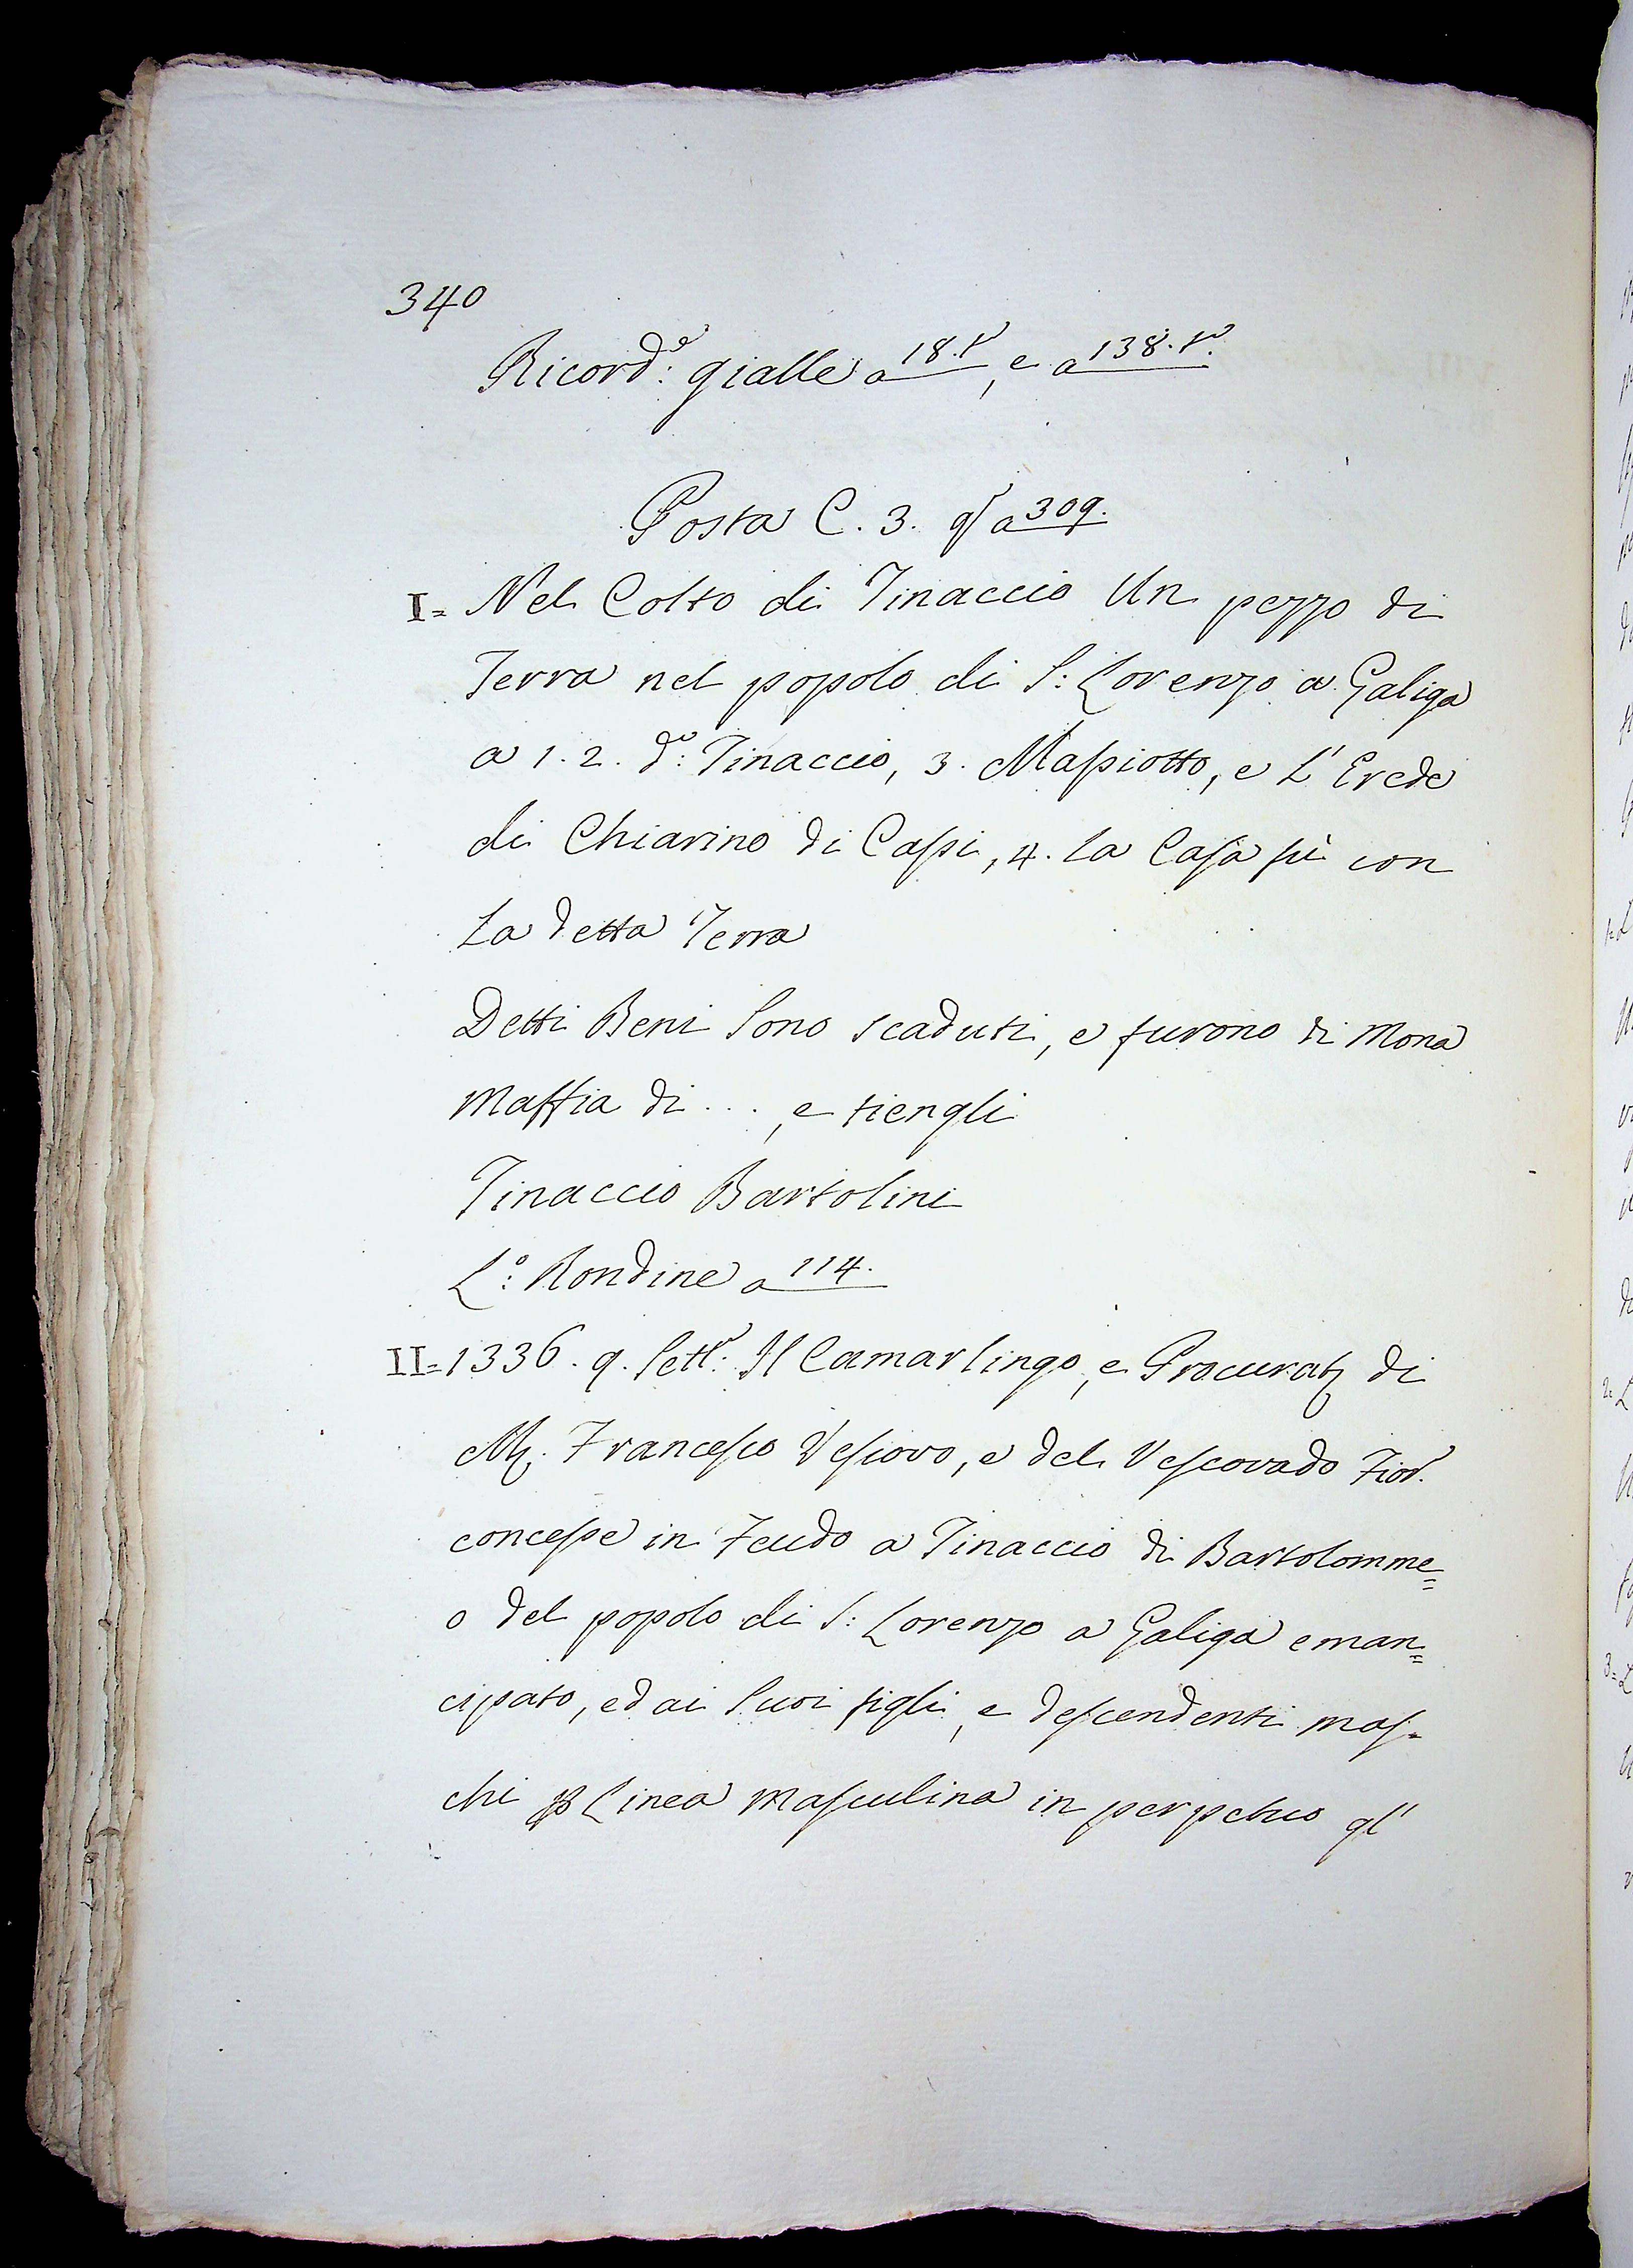 340
Ricord.e: gialle a 18. t.o, e a 138. t.o
Posta C. 3. q.l a 309.
I= Nel Colto di Tinaccio Un pezzo di
Terra nel popolo di S: Lorenzo a Galiga
a 1. 2. d.o: Tinaccio, 3. Massiotto, e L'Erede
di Chiarino di Cassi, 4. La Casa sù con
La detta Terra
Detti Beni Sono scaduti, e furono di Mona
Maffia di ..., e tiengli
Tinaccio Bartolini
L.o: Rondine a 114.
II= 1336. 9. Sett.e: Il Camarlingo, e Procurat.re di
M.r Francesco Vescovo, e del Vescovado Fior.
concesse in Feudo a Tinaccio di Bartolomme=
o del popolo di S: Lorenzo a Galiga eman=
cipato, ed ai Suoi figli, e descendenti mas=
chi p Linea Masculina in perpetuo gl'